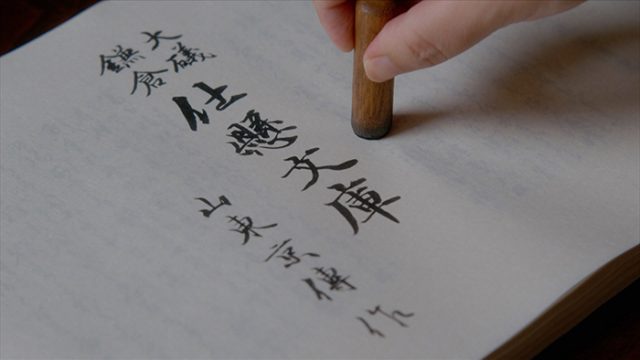 大礒
鎌倉
仕懸文庫
山東京傳作